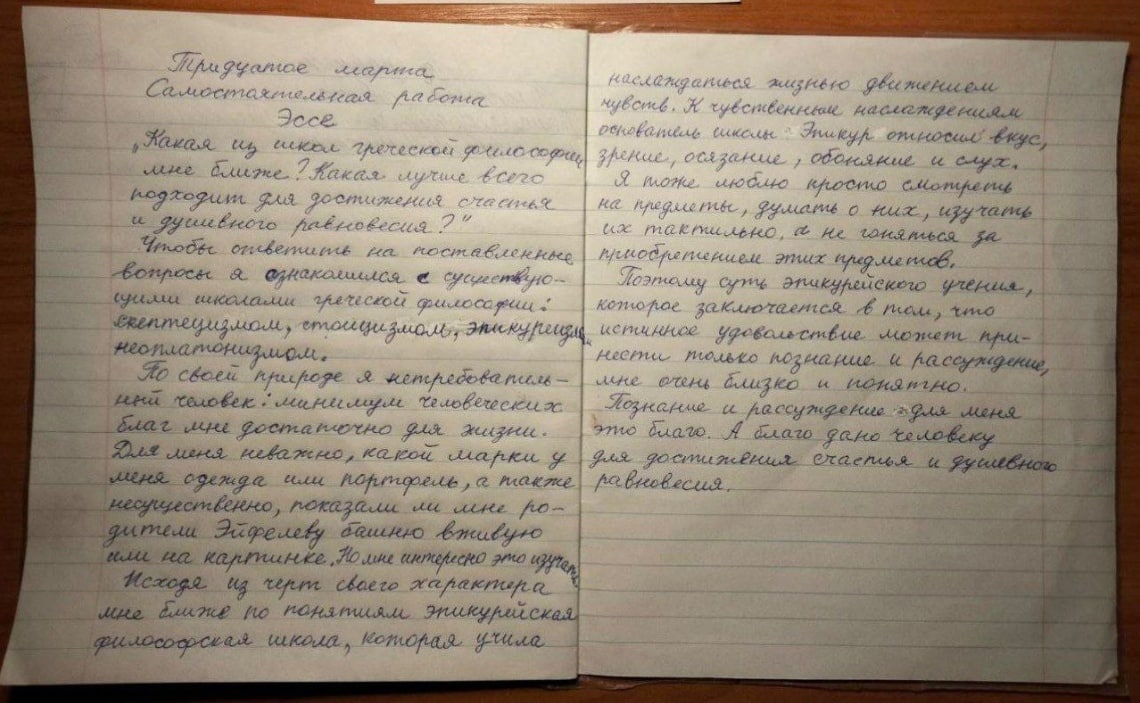 Тридцатое марта
Самостоятельная работа
Эссе
„Какая из школ греческой философии
мне ближе? Какая лучше всего
подходит для достижения счастья
и душевного равновесия?"
Чтобы ответить на поставленные
вопросы я ознакомился с существую-
щими школами греческой философии:
скептецизмом, стоицизмом, эпикуреизмом,
неоплатонизмом.
По своей природе я нетребователь-
ный человек: минимум человеческих
благ мне достаточно для жизни.
Для меня неважно, какой марки у
меня одежда или портфель, а также
несущественно, показали ли мне ро-
дители Эйфелеву башню вживую
или на картинке. Но мне интересно это изучать.
Исходя из черт своего характера
мне ближе по понятиям эпикурейская
философская школа, которая учила
наслаждаться жизнью движением
чувств. К чувственным наслаждениям
основатель школы Эпикур относил вкус,
зрение, осязание, обоняние и слух.
Я тоже люблю просто смотреть
на предметы, думать о них, изучать
их тактильно, а не гоняться за
приобретением этих предметов.
Поэтому суть эпикурейского учения,
которое заключается в том, что
истинное удовольствие может при-
нести только познание и рассуждение,
мне очень близко и понятно.
Познание и рассуждение - для меня
это благо. А благо дано человеку
для достижения счастья и душевного
равновесия.